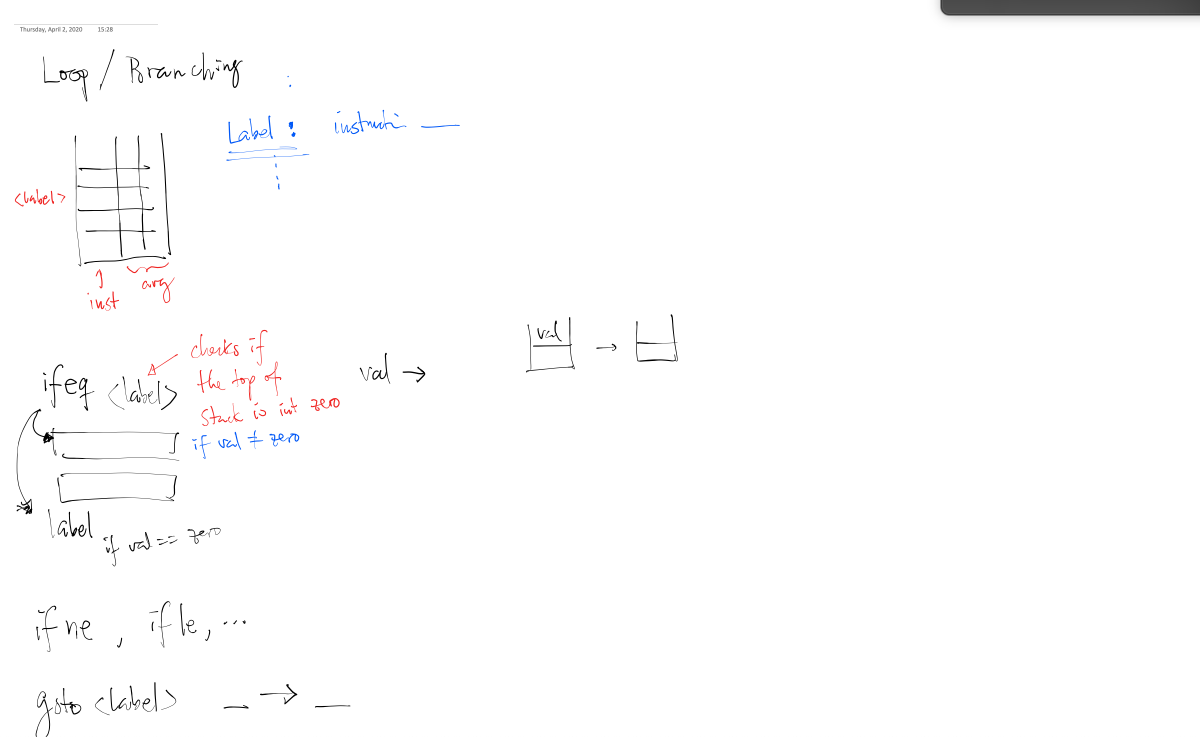 Thursday, April 2, 2020 15:28
Loop / Branching
Label : instructi —
<label>
inst
arg
checks if
the top of
stack is int zero
ifeq <label>
val →
val
→
if val ≠ zero
label
if val == zero
ifne , ifle, ...
goto <label> — → —